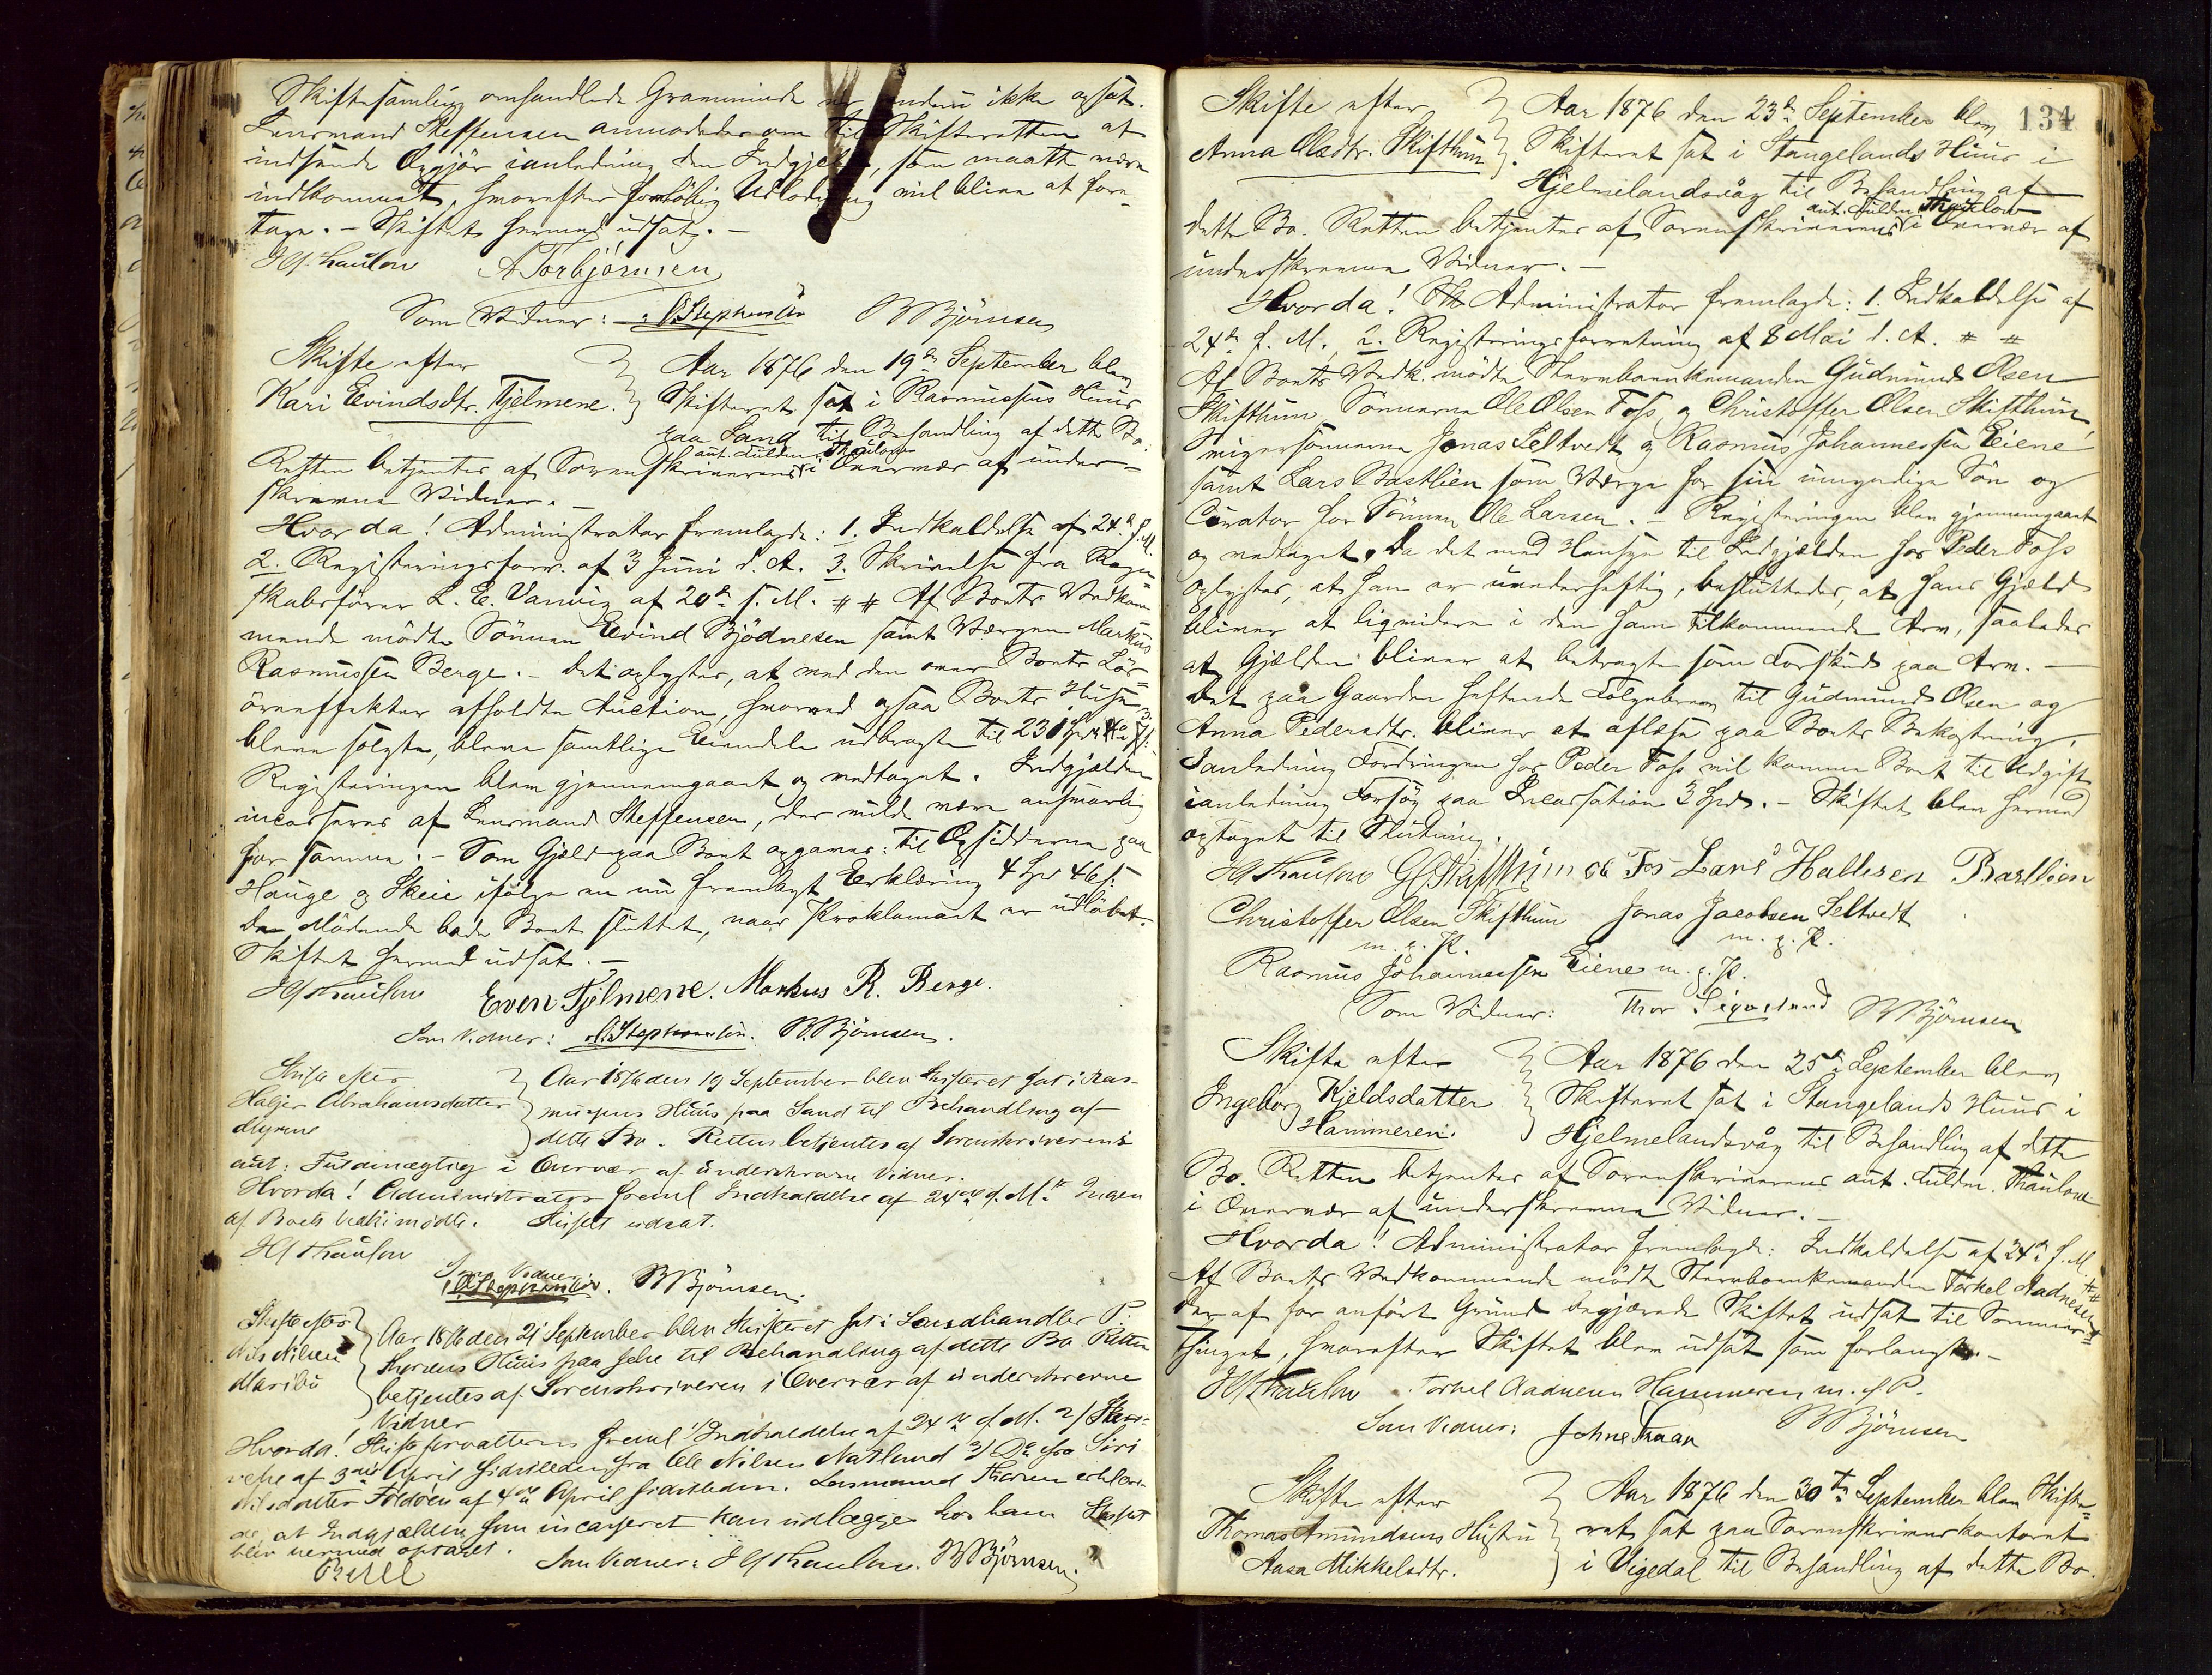 Skiftesamling omhandlede Gramminde er endnu ikke opsat.
Lensmand Steffensen anmodedes om til Skifteretten at
indsende Opgjör ianledning den Indgjeld, som maatte være
indkommet, hvorefter forelöbig Udlodning vil blive at fore-
tage. – Skiftet hermed udsat. –
H Thaulow A Torbjörnsen
Som Vidner: O Stephensen B Björnsen
Skifte efter
Kari Eivindsdtr. Tjelmene.
Aar 1876 den 19de September blev
Skifteret sat i Rasmussens Huus
paa Sand til Behandling af dette Bo.
Retten betjentes af Sorenskriverens aut. Fuldm. Thaulow i Overvær af under-
skrevne Vidner. –
Hvorda! Administrator fremlagde: 1. Indkaldelse af 24de f. M.
2. Registeringsforr. af 3 Juni d. A. 3. Skrivelse fra Regn-
skabsförer L. E. Vanvig af 20de f. M. # # Af Boets Vedkom-
mende mödte Sönnen Eivind Bjödnesen samt Værgen Markus
Rasmussen Berge. – Det oplystes, at med den over Boets Lös-
öreeffekter afholdte Auction, hvorved ogsaa Boets Huse
bleve solgte, bleve samtlige Eiendele udbragte til 231 Spd
Registeringen blev gjennemgaaet og vedtaget. Indgjælden
incasseres af Lensmand Steffensen, der vilde være ansvarlig
for samme. – Som Gjæld paa Boet opgaves: til Opsidderne paa
Hauge og Skeie ifölge en nu fremlagt Erklæring 4 Spd 46 s.
De Mödende bade Boet sluttet, naar Proklamaet er udlöbet.
Skiftet hermed udsat. –
H Thaulow Even Tjelmene. Markus R. Berge.
Som Vidner: O Stephensen. B. Björnsen.
Skifte efter
Abrahamsdatter
Aar 1876 den 19 September blev Skifteret sat i Ras-
mussens Huus paa Sand til Behandling af
dette Bo. Retten betjentes af Sorenskriverens
aut: Fuldmægtig i Overvær af underskrevne Vidner.
Hvorda! Administrator freml Indkaldelse af 24de f. M. Ingen
af Boets Vedk: mödte. Skiftet udsat.
H Thaulow
Som Vidner
O Stephensen. B Björnsen.
Skifte efter
Nils Nilsen
Maribö
Aar 1876 den 21 September blev Skifteret sat i Landhandler P.
Huus paa Jelse til Behandling af dette Bo Retten
betjentes af Sorenskriveren i Overvær af underskrevne
Vidner
Hvorda! Skifteforvalteren freml 1/ Indkaldelse af 24de f. M. 2/ Skri-
velse af 3die April sidstleden fra Ole Nilsen Natland 3/ Do fra Siri
Nilsdatter Foldöen af 4de April sidstleden. Lensmand erklære-
de at Indgjælden som incasseret kan udlægges hos ham Skiftet
blev hermed optaget.
Som Vidner: H Thaulow. B Björnsen.
134
Skifte efter
Anna Olsdtr. Skifthun
Aar 1876 den 23de September blev
Skifteret sat i Stangelands Huus i
Hjelmelandsvåg til Behandling af
dette Bo. Retten betjentes af Sorenskriverens aut. Fuldm. Thaulow i Overvær af
underskrevne Vidner. –
Hvorda! Administrator fremlagde: 1. Indkaldelse af
24de f. M., 2. Registeringsforretning af 8 Mai d. A. # #
Af Boets Vedk. mödte Stervboenkemanden Gudmund Olsen
Skifthun, Sönnerne Ole Olsen Foss og Christoffer Olsen Skifthun,
Svigersönnerne Jonas Seltvedt og Rasmus Johannessen Eiene
samt Lars Bastlien som Værge for sin umyndige Sön og
Curator for Sönnen Ole Larsen. – Registeringen blev gjennemgaaet
og vedtaget. Da det med Hensyn til Indgjælden hos Peder Foss
oplystes, at han er uvederheftig, besluttedes, at hans Gjæld
bliver at liqvidere i den ham tilkommende Arv, saaledes
at Gjælden bliver at betragte som Forskud paa Arv. –
Det paa Gaarden heftende Folgebrev til Gudmund Olsen og
Anna Pedersdtr. bliver at aflæse paa Boets Bekostning.
Ianledning Fordringen hos Peder Foss vil komme Boet til Udgift
ianledning Forsög paa Incassation 3 Spd. – Skiftet blev hermed
optaget til Slutning.
H Thaulow G O Skifthun O O Fos Lars Hallesen Bastlien
Christoffer Olsen Skifthun Jonas Jacobsen Seltvedt
m. p. P. m. p. P.
Rasmus Johannessen Eiene m. p. P.
Som Vidner: Thor Sigvesland B Björnsen
Skifte efter
Ingeborg Kjeldsdatter
Hammeren.
Aar 1876 den 25de September blev
Skifteret sat i Stangelands Huus i
Hjelmelandsvåg til Behandling af dette
Bo. Retten betjentes af Sorenskriverens aut. Fuldm. Thaulow
i Overvær af underskrevne Vidner. –
Hvorda! Administrator fremlagde: Indkaldelse af 24de f. M. # #
Af Boets Vedkommende mödte Stervboenkemanden Torkel Aadnesen,
der af for anfört Grund begjærede Skiftet udsat til Sommer-
thinget, hvorefter Skiftet blev udsat som forlangt. –
H Thaulow Torkel Aadnesen Hammeren m. p. P.
Som Vidner: John Traan B Björnsen
Skifte efter
Thomas Amundsens Hustru
Aasa Mikkelsdtr.
Aar 1876 den 30te September blev Skifte-
ret sat paa Sorenskriverkontoret
i Vigedal til Behandling af dette Bo.